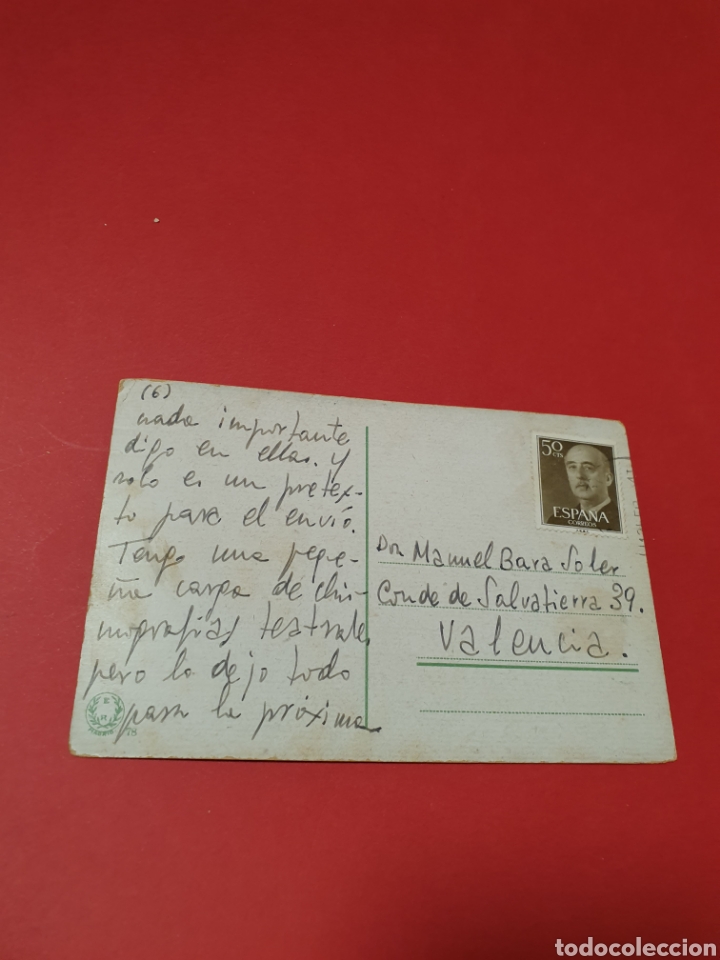 (6)
nada importante
digo en ellas. y
solo es un pretex-
to para el envió.
Tengo una peque-
ña carga de chis-
mografías teatrales,
pero lo dejo todo
para la próxima
78
50
CTS
ESPAÑA
CORREOS
Don Manuel Bara Soler
Conde de Salvatierra 39.
Valencia.
todocoleccion